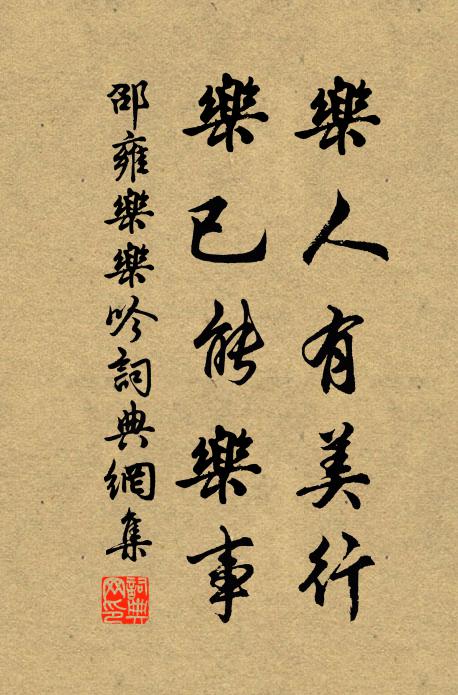 樂人有美行
樂已能樂事
邵雍樂樂吟詞典網集
詞典网印